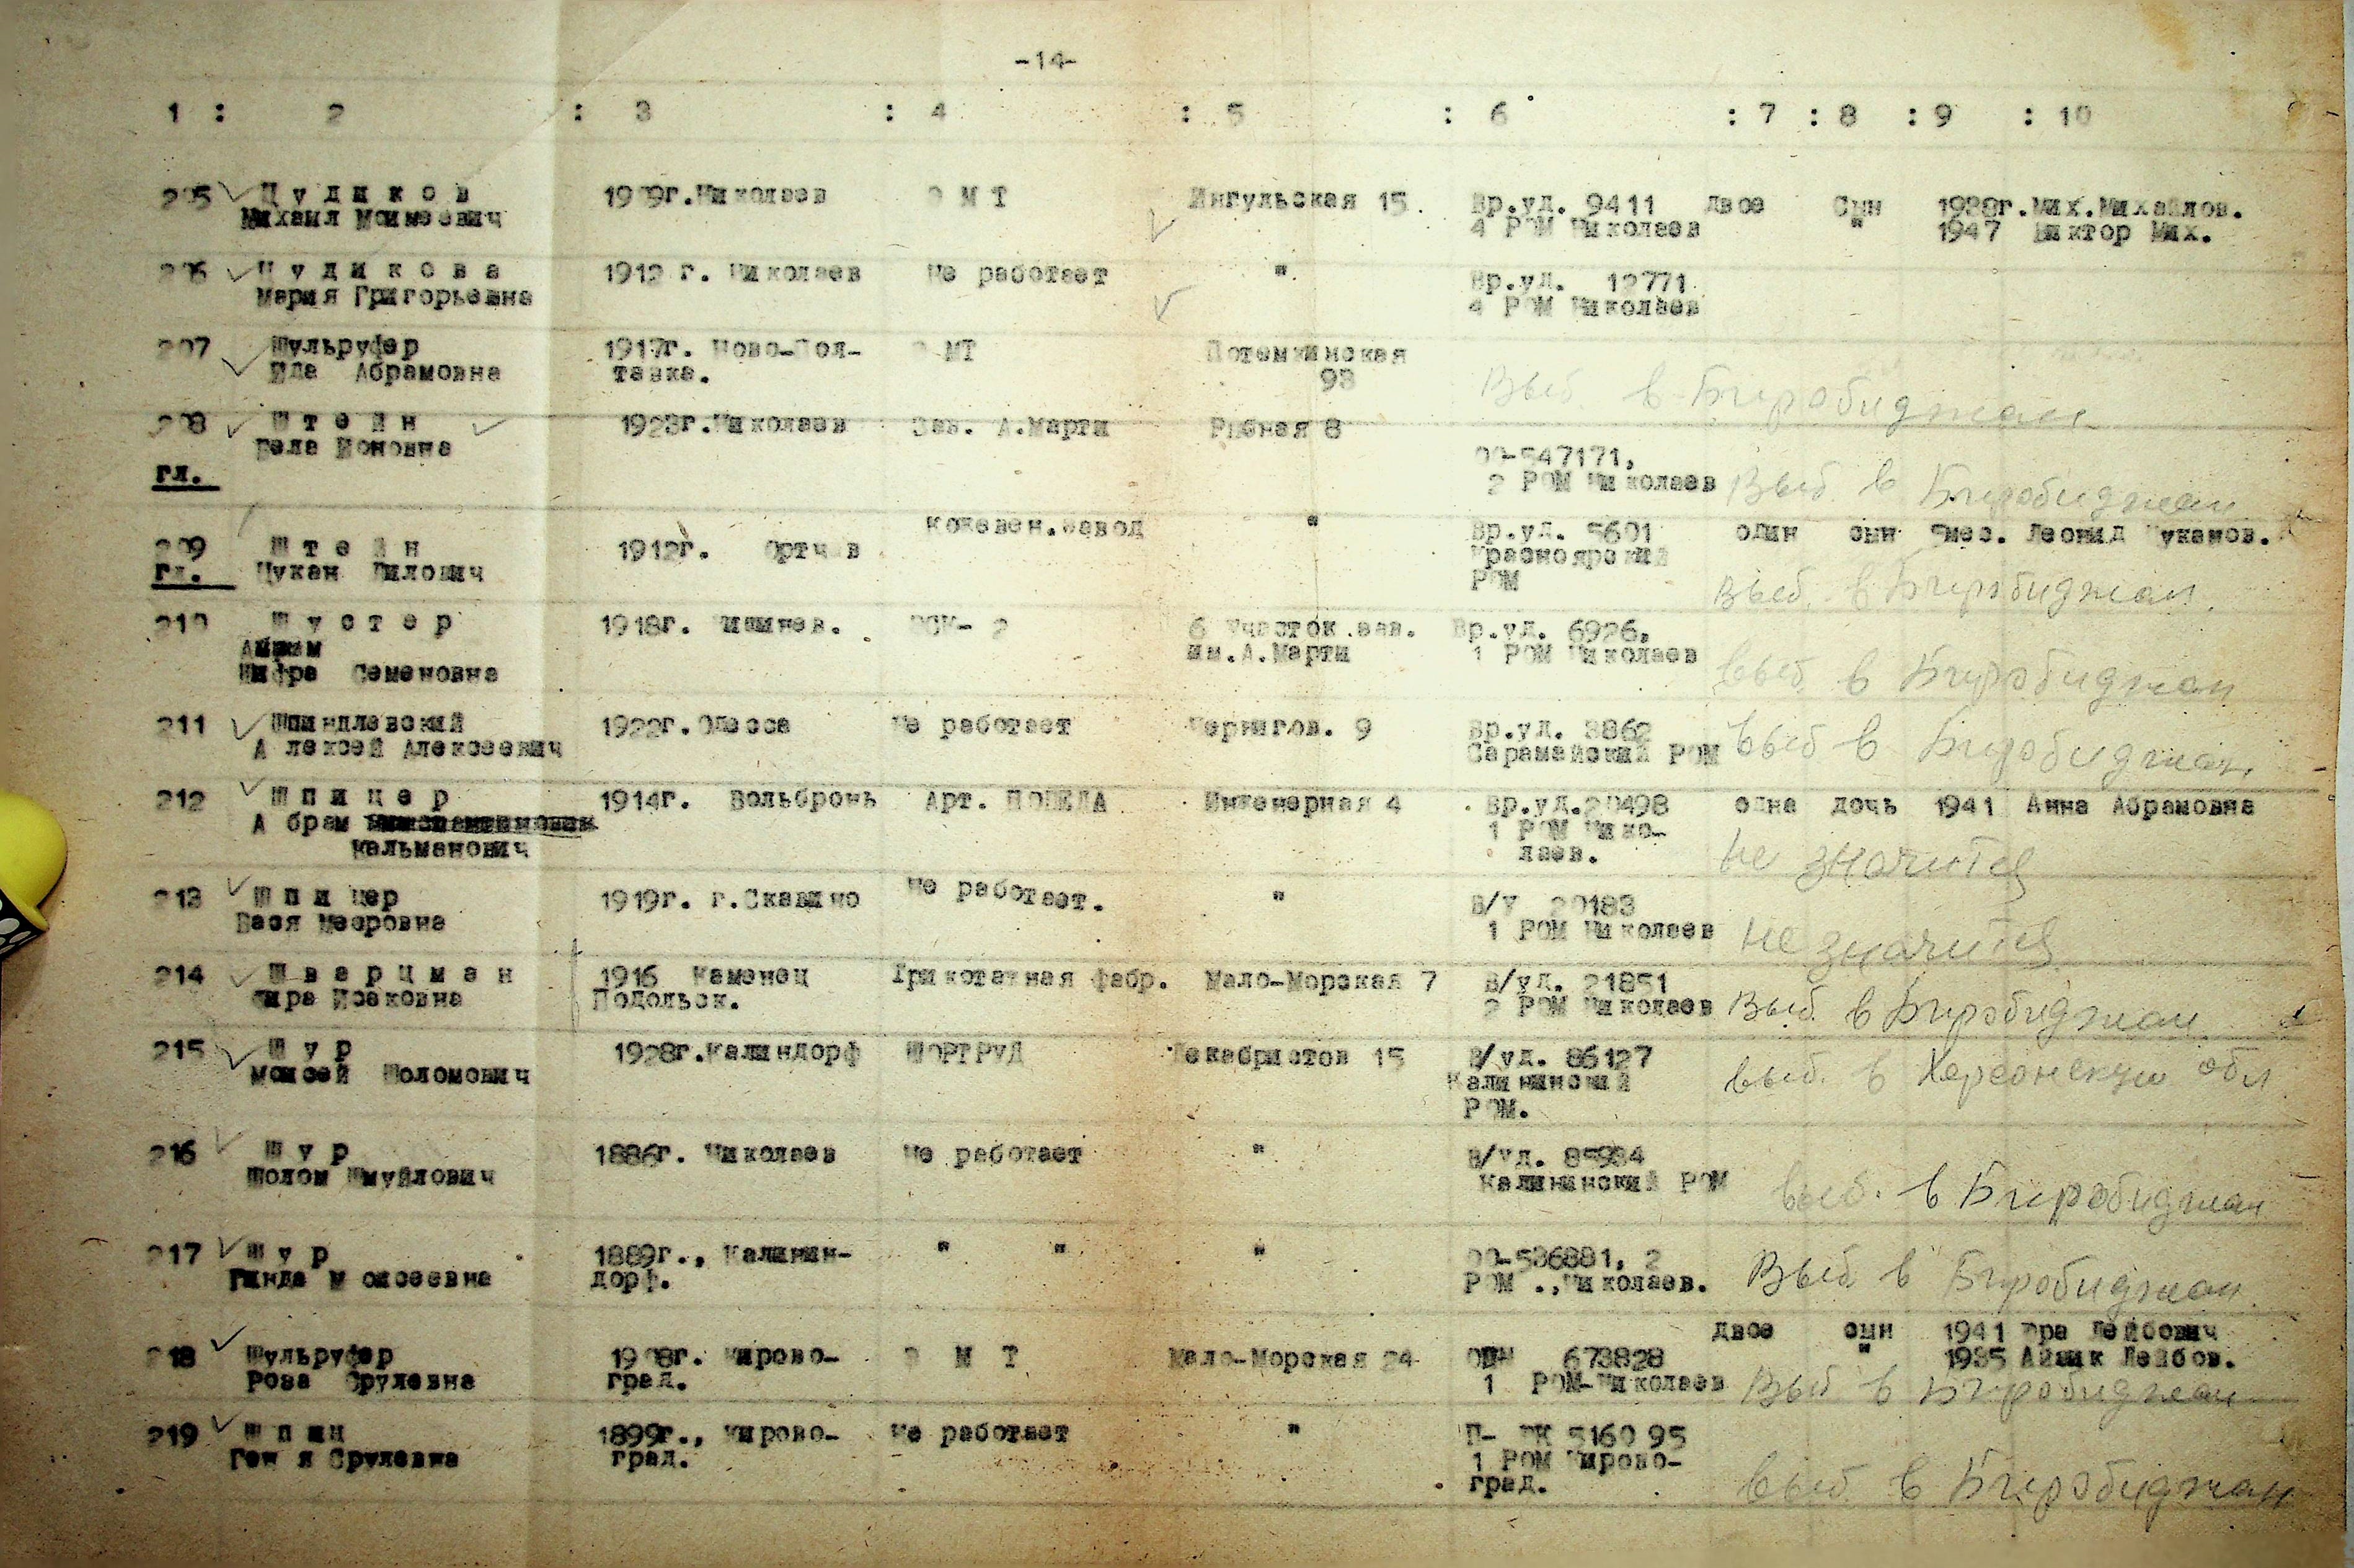 -14-
1 : 2 : 3 : 4 : 5 : 6 : 7 : 8 : 9 : 10
205 Цудиков 1909г.Николаев Э М Т Ингульская 15 Вр.уд. 9411 двое Сын 1938г.Мих.Михайлов.
Михаил Моисеевич 4 РОМ Николаев " 1947 Виктор Мих.
206 Цудикова 1912 г. Николаев Не работает " Вр.уд. 12771
Мария Григорьевна 4 РОМ Николаев
207 Шульруфер 1917г. Ново-Пол- МТ Потемкинская
Абрамовна тавка. 93
Выб. в Биробиджан
208 Штейн 1923г.Николаев Зав. А.Марти Рыбная 8
Бела Ионовна 00-547171,
гл. 2 РОМ Николаев Выб. в Биробиджан
209 Штейн 1912г. Кожевен.завод " Вр.уд. 5601 один сын Леонид
гл. Цукан Красноярский
РОМ выб. в Биробиджан.
210 Шустер 1918г. 6 Участок.зав. Вр.уд. 6926,
им.А.Марти 1 РОМ Николаев
Шифра Семеновна выб. в Биробиджан
211 Шпиндлевский 1922г.Одесса Не работает Чернигов. 9 Вр.уд. 3862
Алексей Алексеевич РОМ выб в Биробиджан.
212 Шпицер 1914г. Вольбронь Арт. ПОБЕДА Инженерная 4 Вр.уд.20498 одна дочь 1941 Анна Абрамовна
Абрам 1 РОМ Нико-
Кальманович лаев. не значится
213 Шпицер 1919г. Не работает. " В/У 20183
Бася Мееровна 1 РОМ Николаев не значится
214 Шварцман 1916 Каменец Трикотажная фабр. Мало-Морская 7 В/уд. 21851
Исаковна Подольск. 2 РОМ Николаев Выб. в Биробиджан
215 Шур 1928г.Калиндорф ШОРТРУД Декабристов 15 В/уд. 86127
Моисей Шоломович Калининский
РОМ. выб. в Херсонскую обл
216 Шур 1886г. Николаев Не работает " В/уд. 85934
Шолом Шмуйлович Калининский РОМ выб. в Биробиджан
217 Шур 1889г., Калинин- " " " 00-536881, 2
Гинда Моисеевна дорф. РОМ .,Николаев. Выб в Биробиджан
двое сын 1941 Лейбович
218 Шульруфер 1908г. Кирово- Э М Т Мало-Морская 24 673828 " 1935 Айзик Лейбов.
Роза Срулевна град. 1 РОМ-Николаев Выб в Биробиджан
219 Шпин 1899г., Кирово- Не работает " П- 516095
Срулевна град. 1 РОМ Кирово-
град. выб в Биробиджан